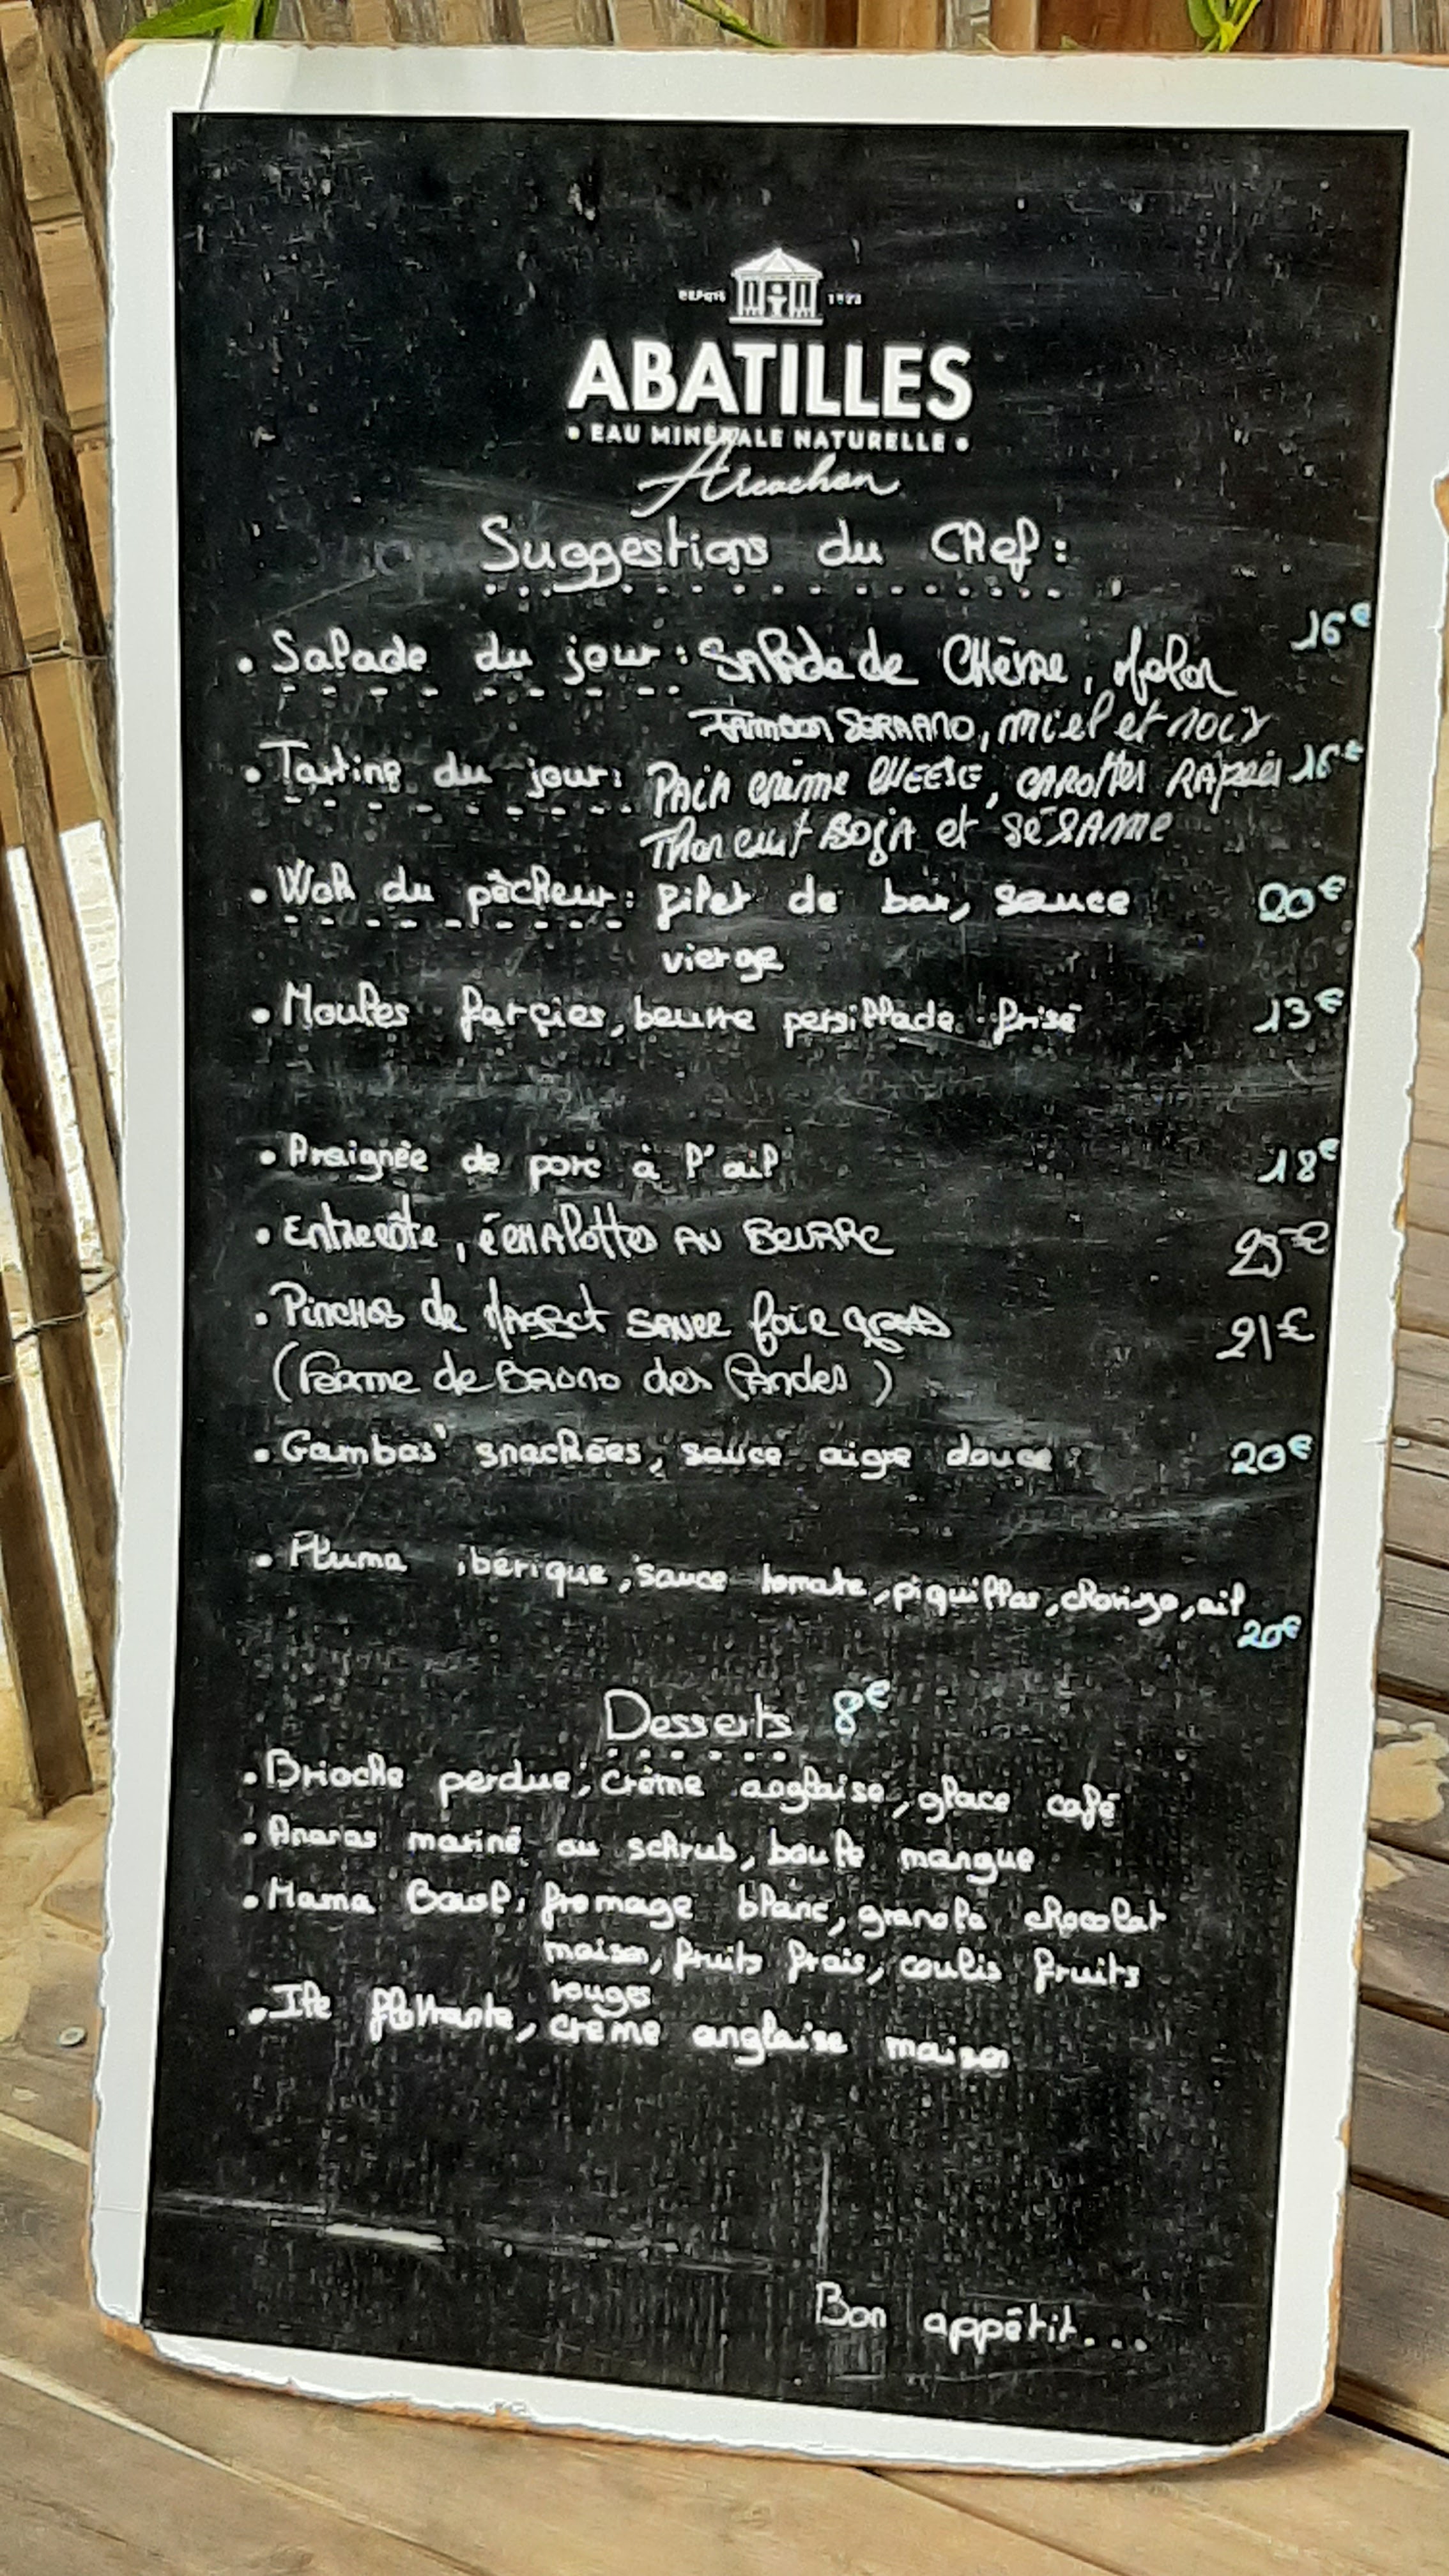 DEPUIS 1923
ABATILLES
• EAU MINÉRALE NATURELLE •
Arcachon
Suggestions du Chef :
• Salade du jour : Salade de Chèvre, Melon 16€
Jambon Serrano, miel et noix
• Tartine du jour : Pain crème cheese, carottes Rapées 16€
Thon cuit soja et sésame
• Wok du pêcheur : filet de bar, sauce 20€
vierge
• Moules farçies, beurre persillade frisé 13€
• Araignée de porc à l'ail 18€
• Entrecôte, échalottes au beurre 25€
• Pinchos de Magret sauce foie gras 21€
(Ferme de Bruno des Landes)
• Gambas snackées, sauce aigre douce 20€
• Pluma ibérique, sauce tomate, piquillos, chorizo, ail
20€
Desserts 8€
• Brioche perdue, crème anglaise, glace café
• Ananas mariné au schrub, boule mangue
• Mama Bowl, fromage blanc, granola chocolat
maison, fruits frais, coulis fruits
rouges
• Ile flottante, crème anglaise maison
Bon appétit...